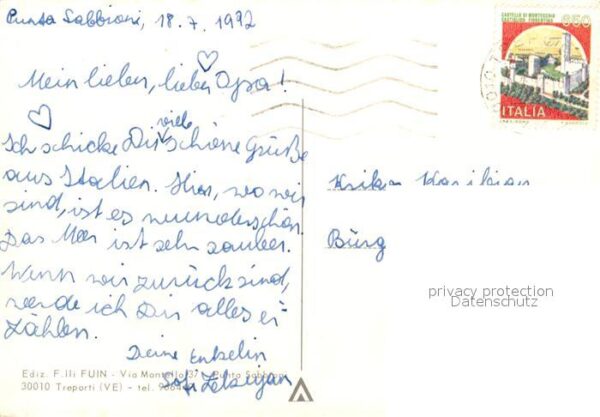 Punta Sabbioni, 18.7.1992
Mein lieber, lieber Opa!
Ich schicke Dir viele schöne Grüße
aus Italien. Hier, wo wir
sind, ist es wunderschön.
Das Meer ist sehr sauber.
Wenn wir zurück sind,
werde ich Dir alles er-
zählen.
Deine Enkelin
Ediz. F.lli FUIN - Via Montello 3 - Punta Sabbioni
30010 Treporti (VE) - tel.
CASTELLO DI MONTECCHIO
CASTIGLION FIORENTINO
650
ITALIA
Burg
privacy protection
Datenschutz